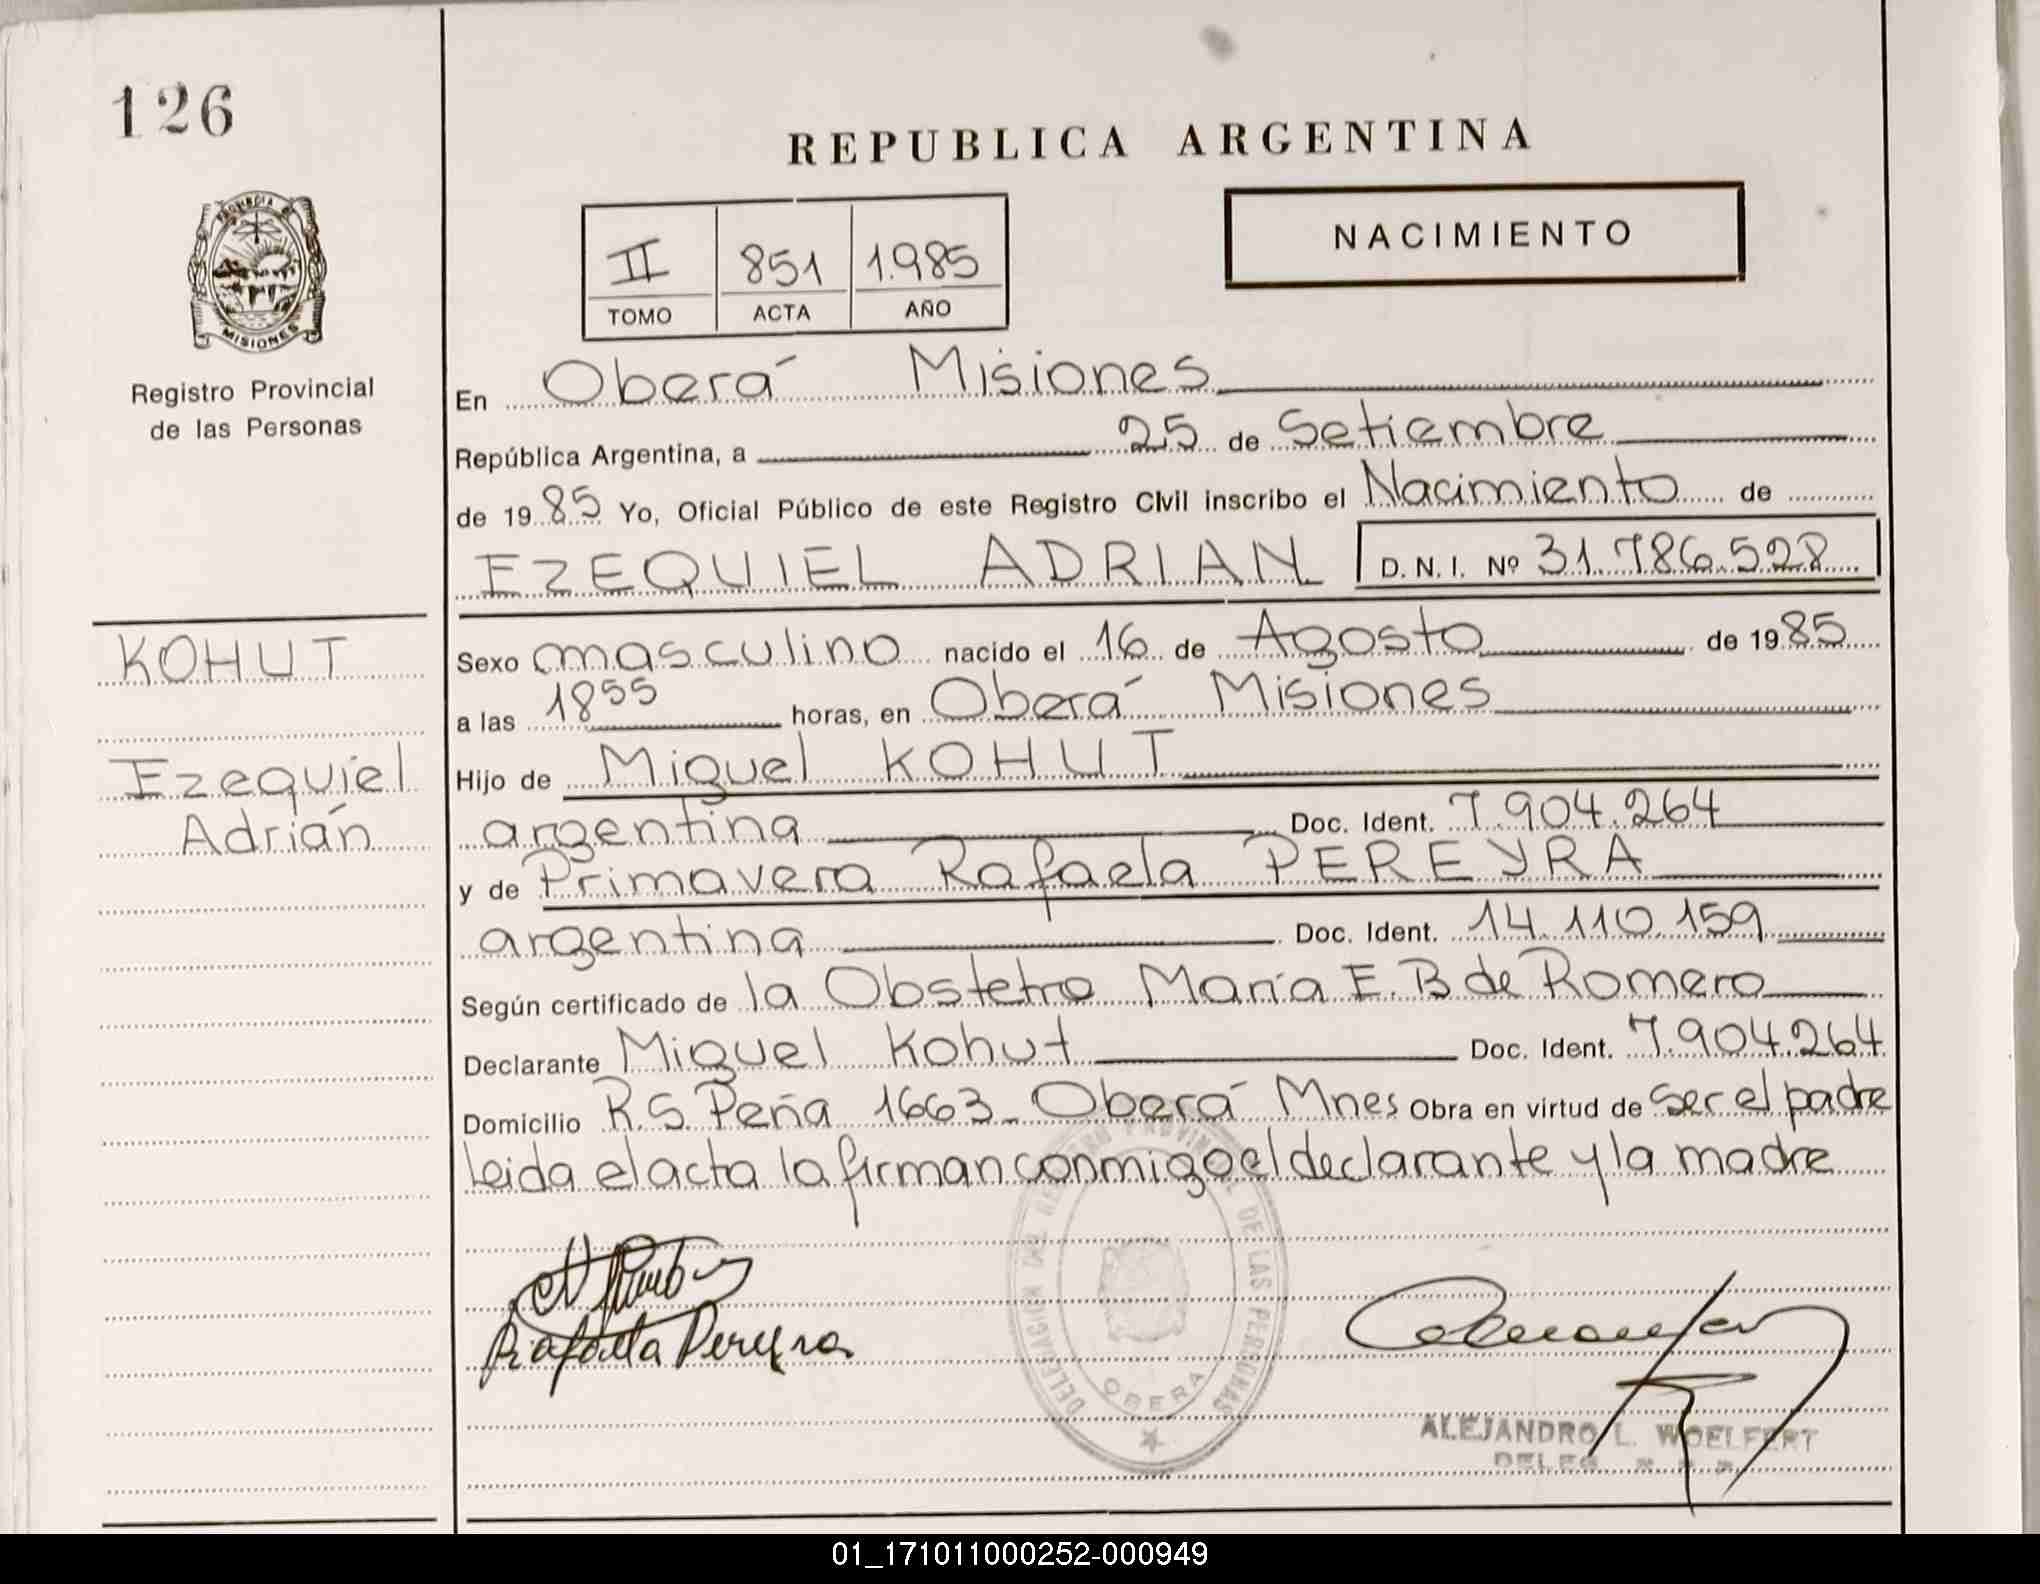 126
REPUBLICA ARGENTINA
NACIMIENTO
II 851 1.985
TOMO ACTA AÑO
PROVINCIA DE
MISIONES
Registro Provincial
de las Personas
En Oberá Misiones
República Argentina, a 25 de Setiembre
de 1985 Yo, Oficial Público de este Registro Civil inscribo el Nacimiento de
EZEQUIEL ADRIAN D. N. I. Nº 31.786.528
KOHUT
Ezequiel
Adrián
Sexo masculino nacido el 16 de Agosto de 1985
a las 1855 horas, en Oberá Misiones
Hijo de Miguel KOHUT
argentina Doc. Ident. 7.904.264
y de Primavera Rafaela PEREYRA
argentina Doc. Ident. 14.110.159
Según certificado de la Obstetra María E. B de Romero
Declarante Miguel Kohut Doc. Ident. 7.904.264
Domicilio R. S. Peña 1663 - Oberá Mnes Obra en virtud de ser el padre
Leida el acta la firman conmigo el declarante y la madre
Rafaela Pereyra
DELEGACION DEL REGISTRO PROVINCIAL DE LAS PERSONAS
OBERA
ALEJANDRO L. WOELFERT
01_171011000252-000949